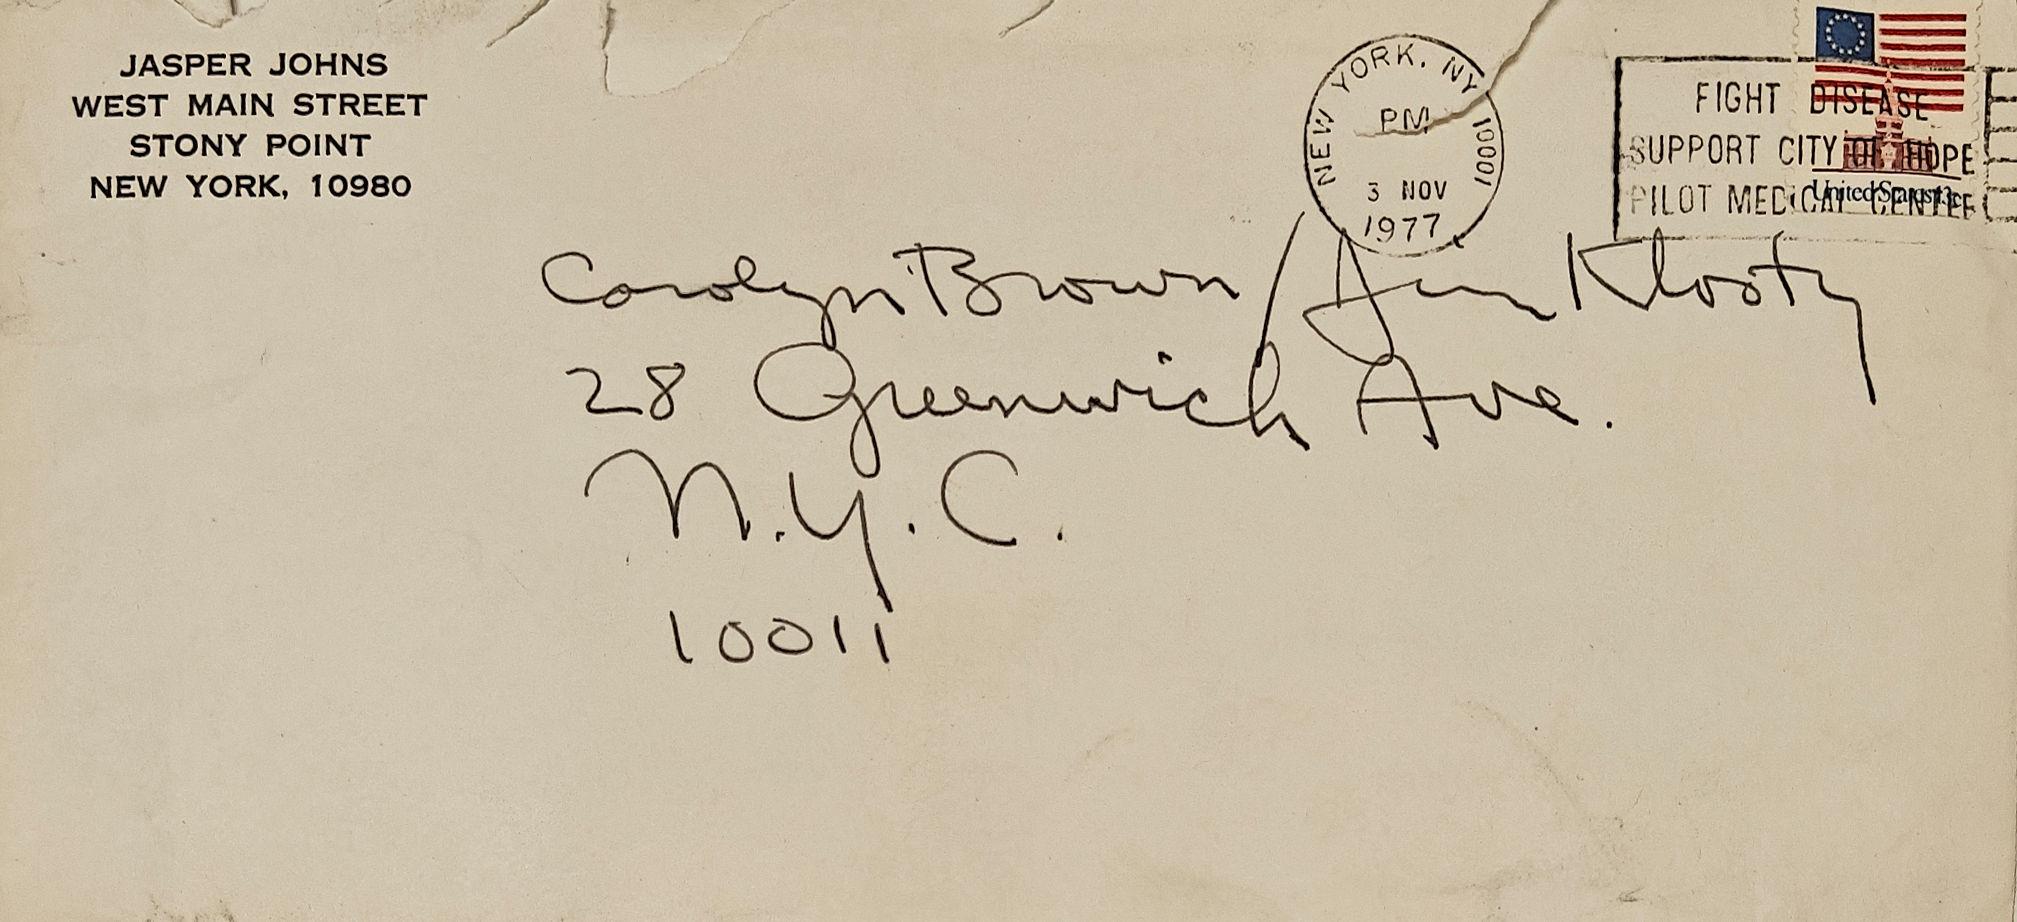 JASPER JOHNS
WEST MAIN STREET
STONY POINT
NEW YORK, 10980
NEW YORK, NY 10001
PM
3 NOV
1977
FIGHT DISEASE
SUPPORT CITY OF HOPE
PILOT MEDICAL CENTER
United States 13c
Carolyn Brown / Jim Klosty
28 Greenwich Ave.
N.Y.C.
10011